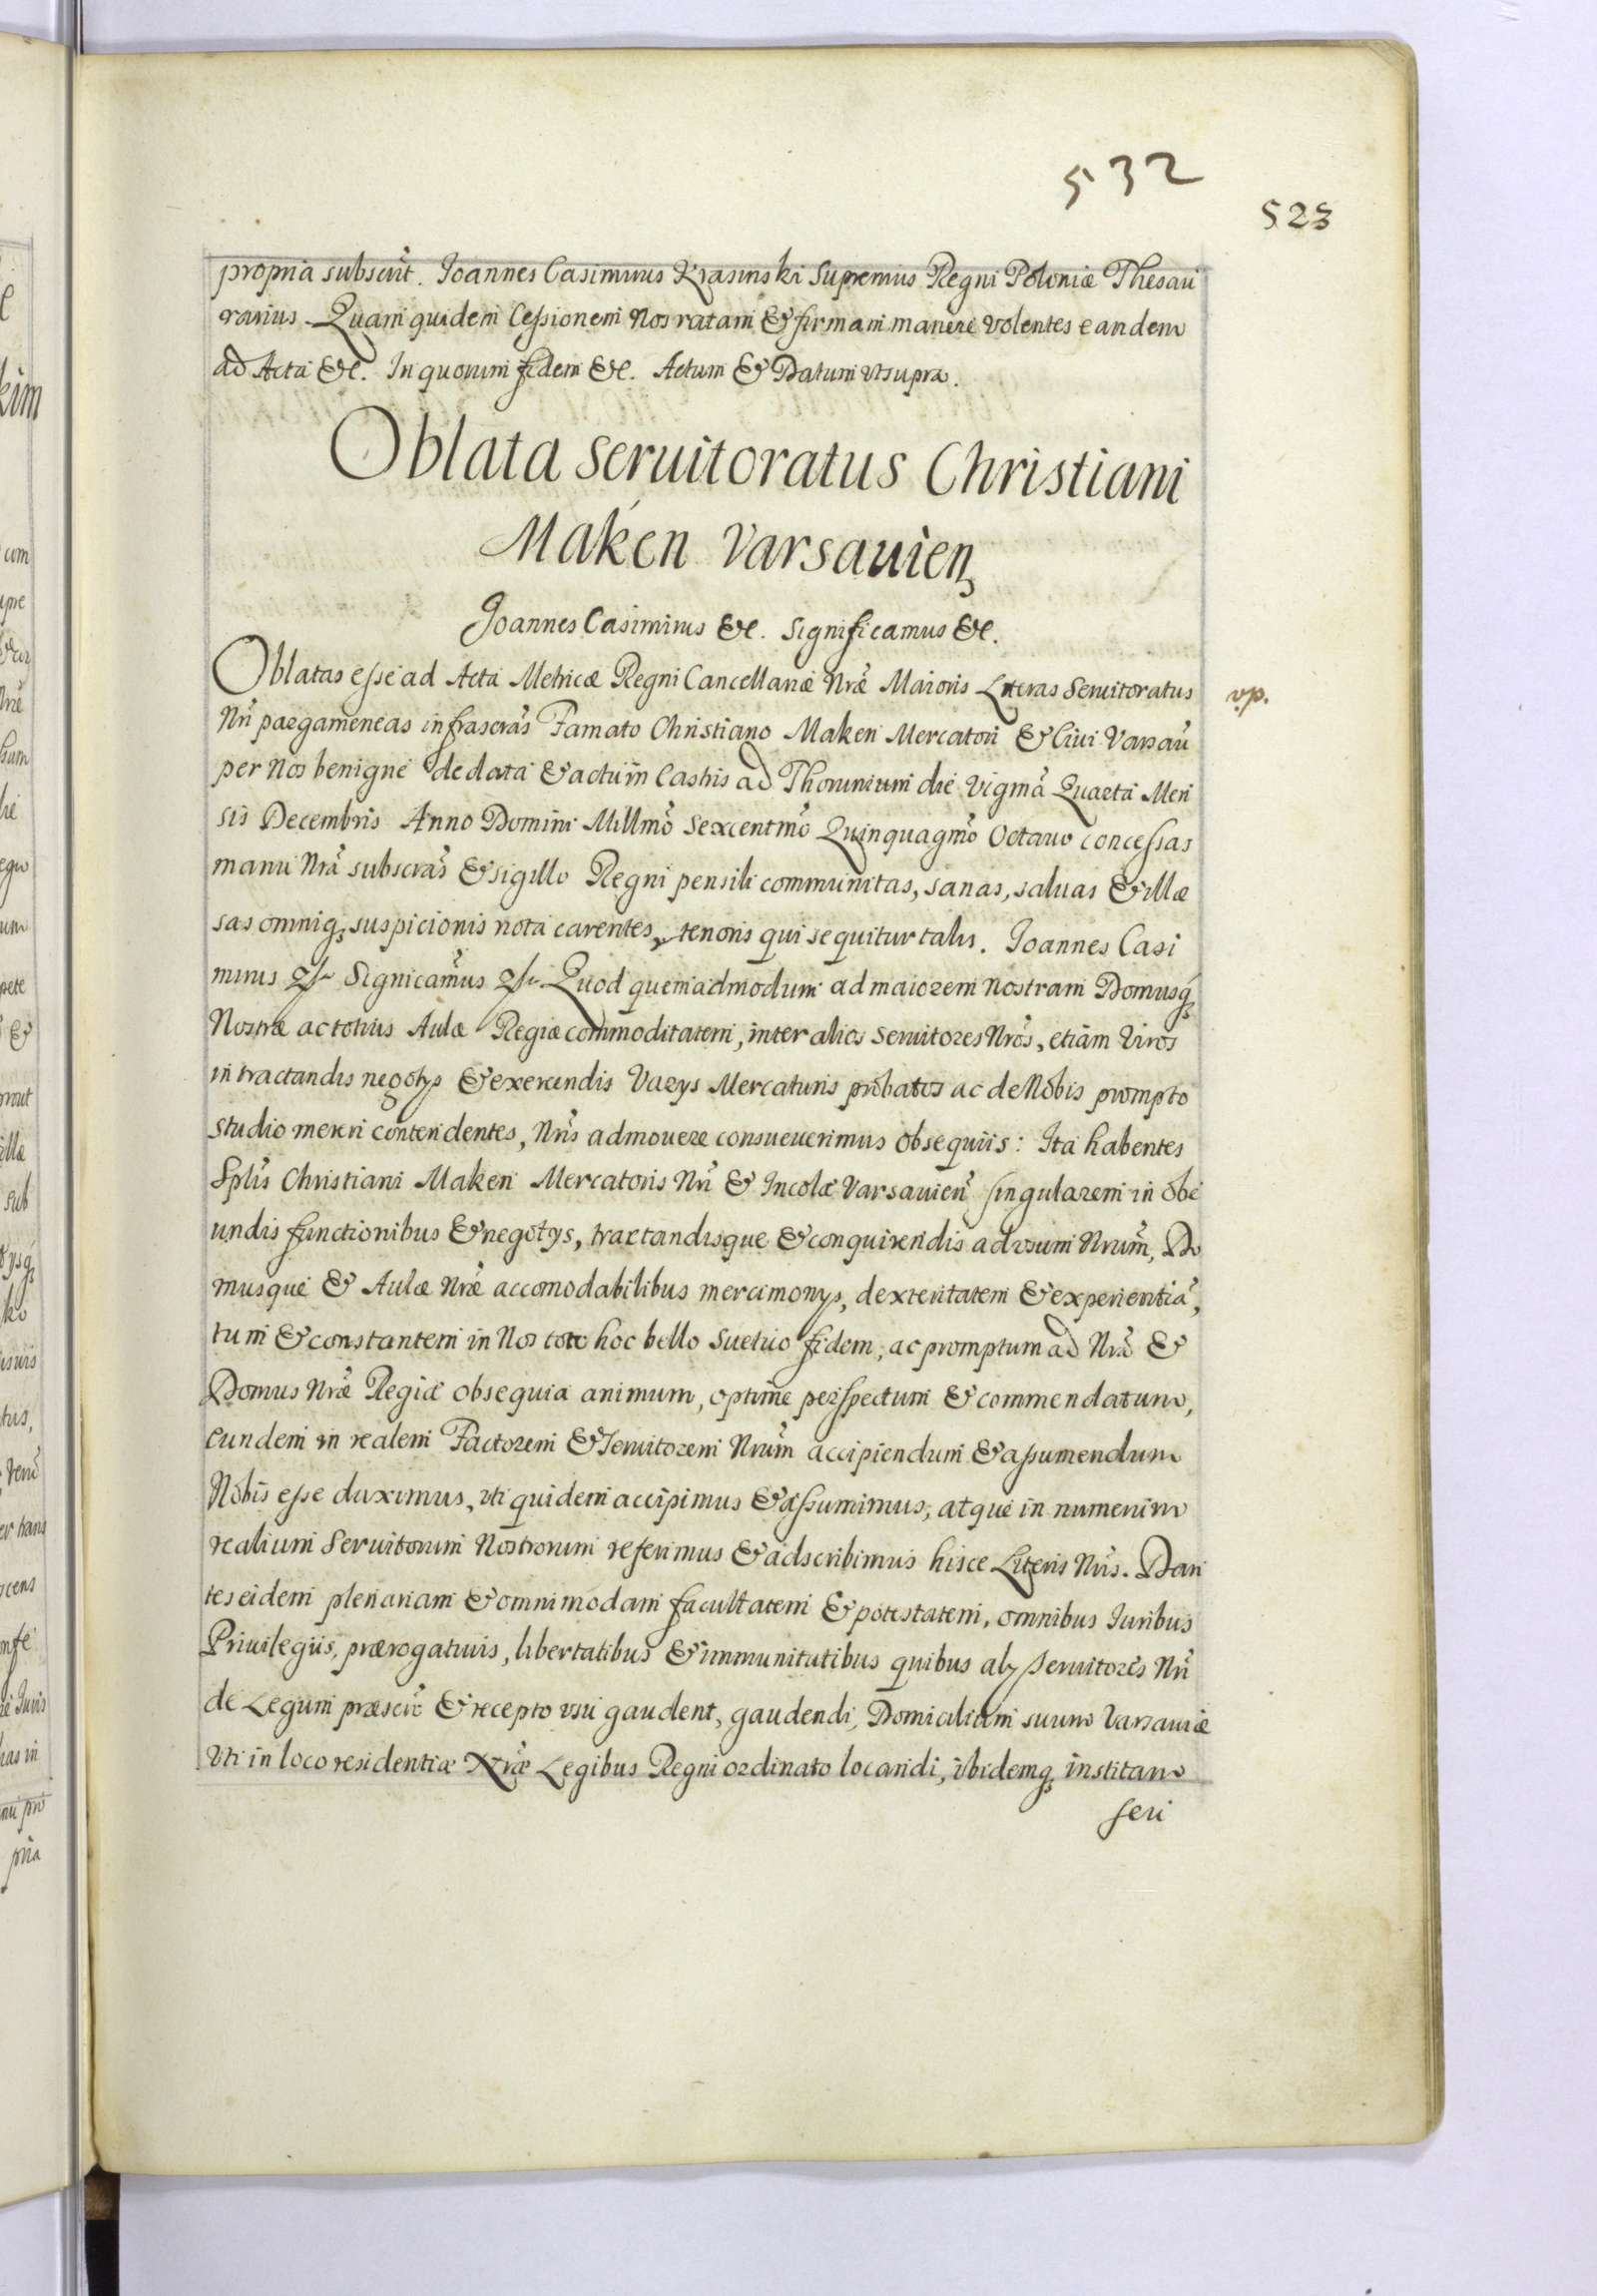 532
523
propria subscrit. Joannes Casimirus Krasinski Supremus Regni Poloniæ Thesau
rarius. Quam quidem Cessionem Nos ratam & firmam manere volentes eandem
ad Acta &c. In quorum fidem &c. Actum & Datum vtsupra.
Oblata Seruitoratus Christiani
Maken Varsauien
Joannes Casimirus &c. Significamus &c.
Oblatas esse ad Acta Metricæ Regni Cancellariæ Nræ Maioris Literas Seruitoratus
vp.
Nri pargameneas infrascras Famato Christiano Maken Mercatori & Ciui Varsau
per Nos benigne de data & actu in Castris ad Thorunium die Vigma Quarta Men
sis Decembris Anno Domini Millmo Sexcentmo Quinquagmo Octauo concessas
manu Nra subscras & sigillo Regni pensili communitas, sanas, saluas & illæ
sas omniq suspicionis nota carentes, tenoris qui sequitur talis. Joannes Casi
mirus &c Signicamus &c Quod quemadmodum ad maiorem Nostram Domusq
Nostræ ac totius Aulæ Regiæ commoditatem, inter alios Seruitores Nros, etiam Viros
in tractandis negotys & exercendis Varys Mercaturis probatos ac de Nobis prompto
studio mereri contendentes, Nris admouere consueuerimus obsequiis: Ita habentes
Splis Christiani Maken Mercatoris Nri & Incolæ Varsauien singularem in obe
undis functionibus & negotys, tractandisque & conquirendis ad vsum Nrum, Do
musque & Aulæ Nræ accomodabilibus mercimonys, dexteritatem & experientia,
tum & constantem in Nos toto hoc bello Suetico fidem, ac promptum ad Nra &
Domus Nræ Regiæ obsequia animum, optime perspectum & commendatum,
eundem in realem Factorem & Seruitorem Nrum accipiendum & assumendum
Nobis esse duximus, vti quidem accipimus & assumimus, atque in numerum
realium Seruitorum Nostrorum referimus & adscribimus hisce Literis Nris. Dan
tes eidem plenariam & omnimodam facultatem & potestatem, omnibus Iuribus
Priuilegiis, prærogatiuis, libertatibus & immunitatibus quibus aly Seruitores Nri
de Legum præscro & recepto vsu gaudent, gaudendi, Domicilium suum Varsauiæ
Vti in loco residentiæ Nræ Legibus Regni ordinato locandi, ibidemq institam
seu